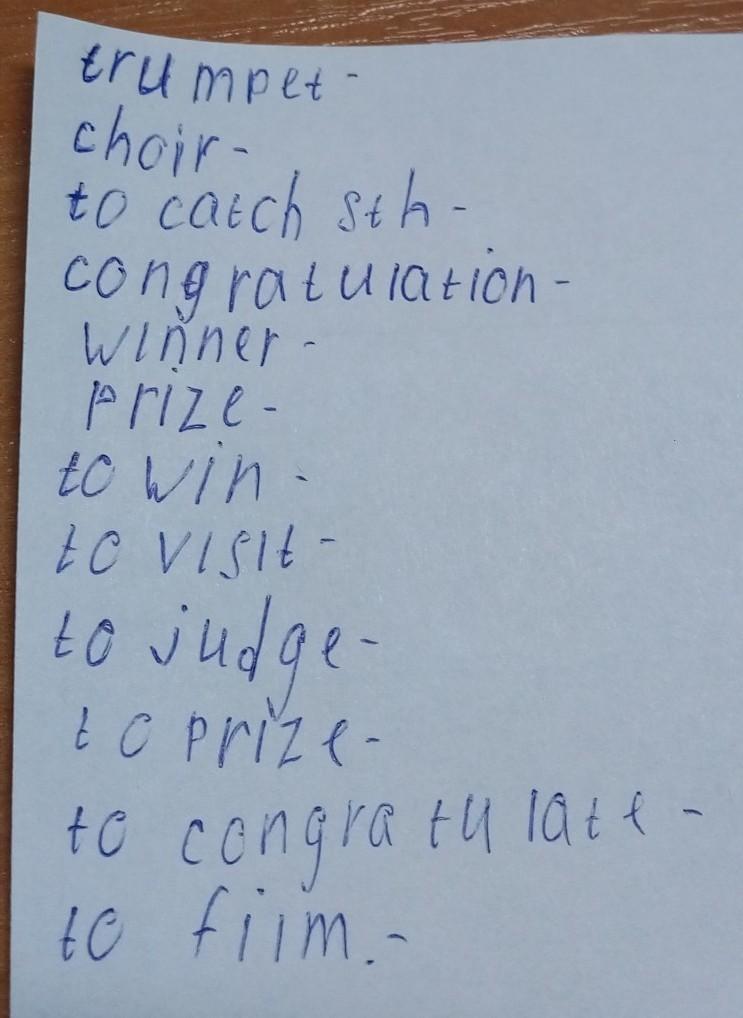 trumpet -
choir -
to catch sth -
congratulation -
winner -
prize -
to win -
to visit -
to judge -
to prize -
to congratulate -
to film. -